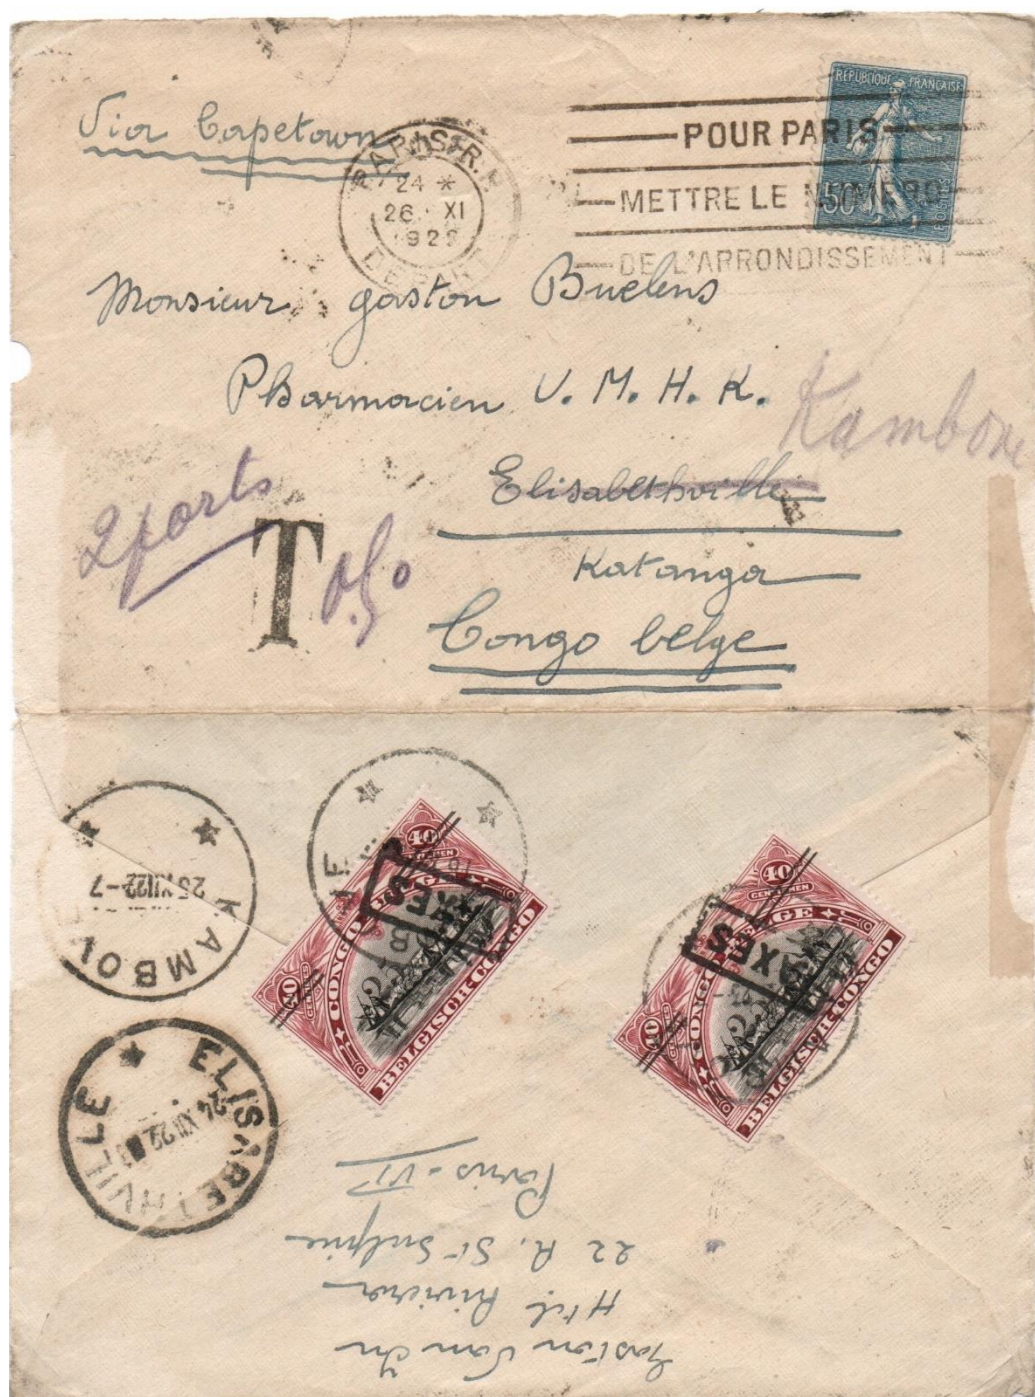 Via Capetown
PARIS R.
24 *
26 XI
DEPART
POUR PARIS
METTRE LE NUMERO
DE L'ARRONDISSEMENT
REPUBLIQUE FRANÇAISE
50
POSTES
Monsieur Gaston Buelens
Pharmacien U. M. H. K.
Kambove
Elisabethville
Katanga
Congo belge
2 ports
T 0,50
KAMBOVE
25 XII 22-7
ELISABETHVILLE
24 XII 22
40 40
CENTIMEN
CONGO BELGE
TAXES
BELGISCH-CONGO
40 40
CENTIMEN
CONGO BELGE
TAXES
BELGISCH-CONGO
Gaston Van
Htel Riviera
22 R. St Sulpice
Paris-VI